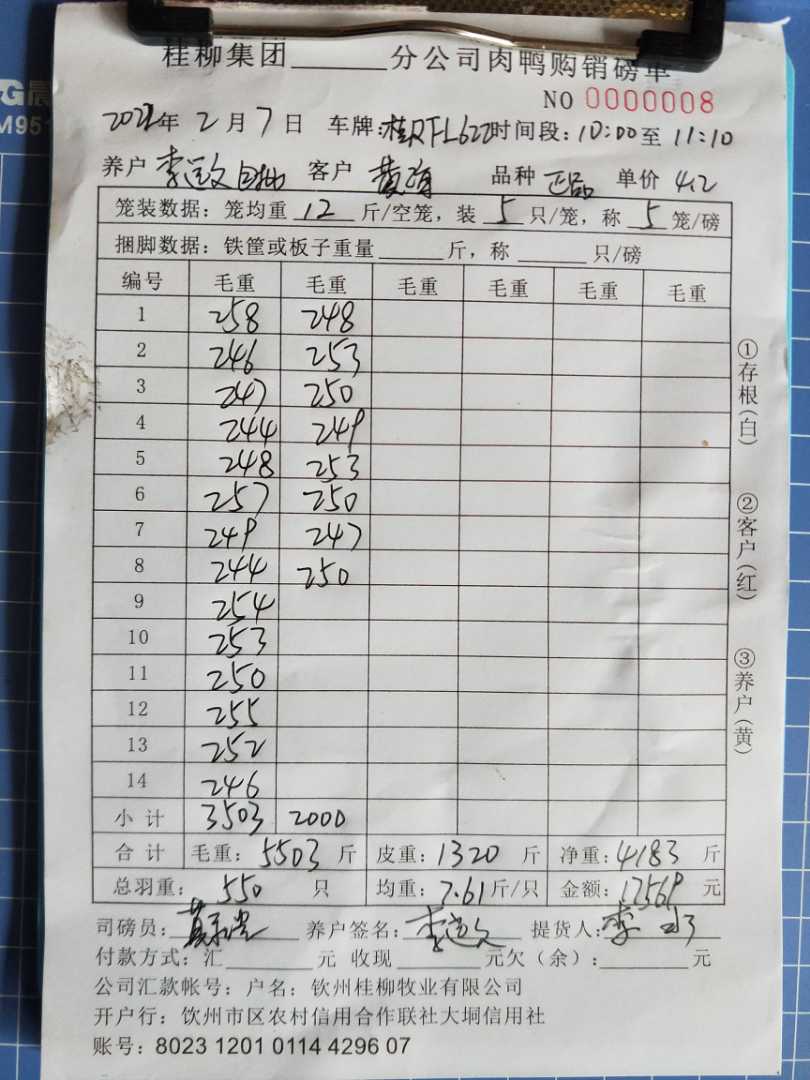 G晨
M951
桂柳集团______分公司肉鸭购销磅单
NO 0000008
2022年 2月 7日 车牌:桂RTL622 时间段:10:00至 11:10
养户 李廷文自抽 客户 黄海 品种 正品 单价 4.2
笼装数据:笼均重 12 斤/空笼,装 5 只/笼,称 5 笼/磅
捆脚数据:铁筐或板子重量______斤,称______只/磅
编号 毛重 毛重 毛重 毛重 毛重 毛重
1 258 248
2 246 253
3 247 250
4 244 249
5 248 253
6 257 250
7 249 247
8 244 250
9 254
10 253
11 250
12 255
13 252
14 246
小计 3503 2000
合计 毛重:5503斤 皮重:1320斤 净重:4183斤
总羽重:550只 均重:7.61斤/只 金额:17569元
司磅员: 养户签名:李廷文 提货人:李
付款方式:汇______元 收现______元欠(余):______元
公司汇款帐号:户名:钦州桂柳牧业有限公司
开户行:饮州市区农村信用合作联社大垌信用社
账号:8023 1201 0114 4296 07
①存根(白)
②客户(红)
③养户(黄)